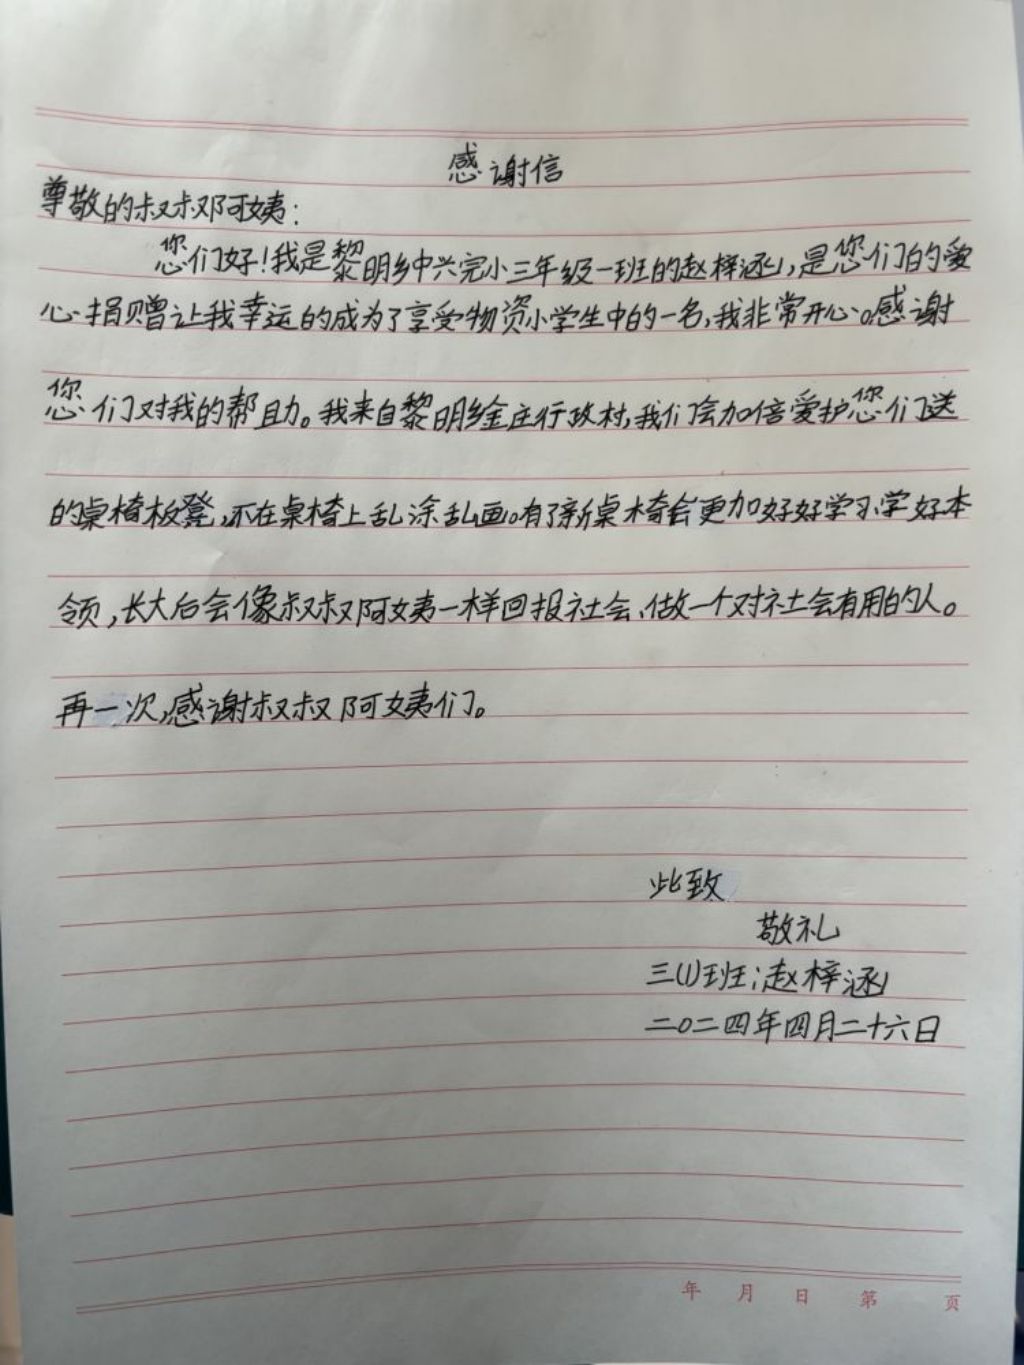 感谢信
尊敬的叔叔阿姨：
您们好！我是黎明乡中兴完小三年级一班的赵梓涵，是您们的爱
心捐赠让我幸运的成为了享受物资小学生中的一名，我非常开心。感谢
您们对我的帮助。我来自黎明乡金庄行政村，我们会加倍爱护您们送
的桌椅板凳，不在桌椅上乱涂乱画。有了新桌椅会更加好好学习，学好本
领，长大后会像叔叔阿姨一样回报社会、做一个对社会有用的人。
再一次，感谢叔叔阿姨们。
此致
敬礼
三(1)班：赵梓涵
二〇二四年四月二十六日
年 月 日 第 页